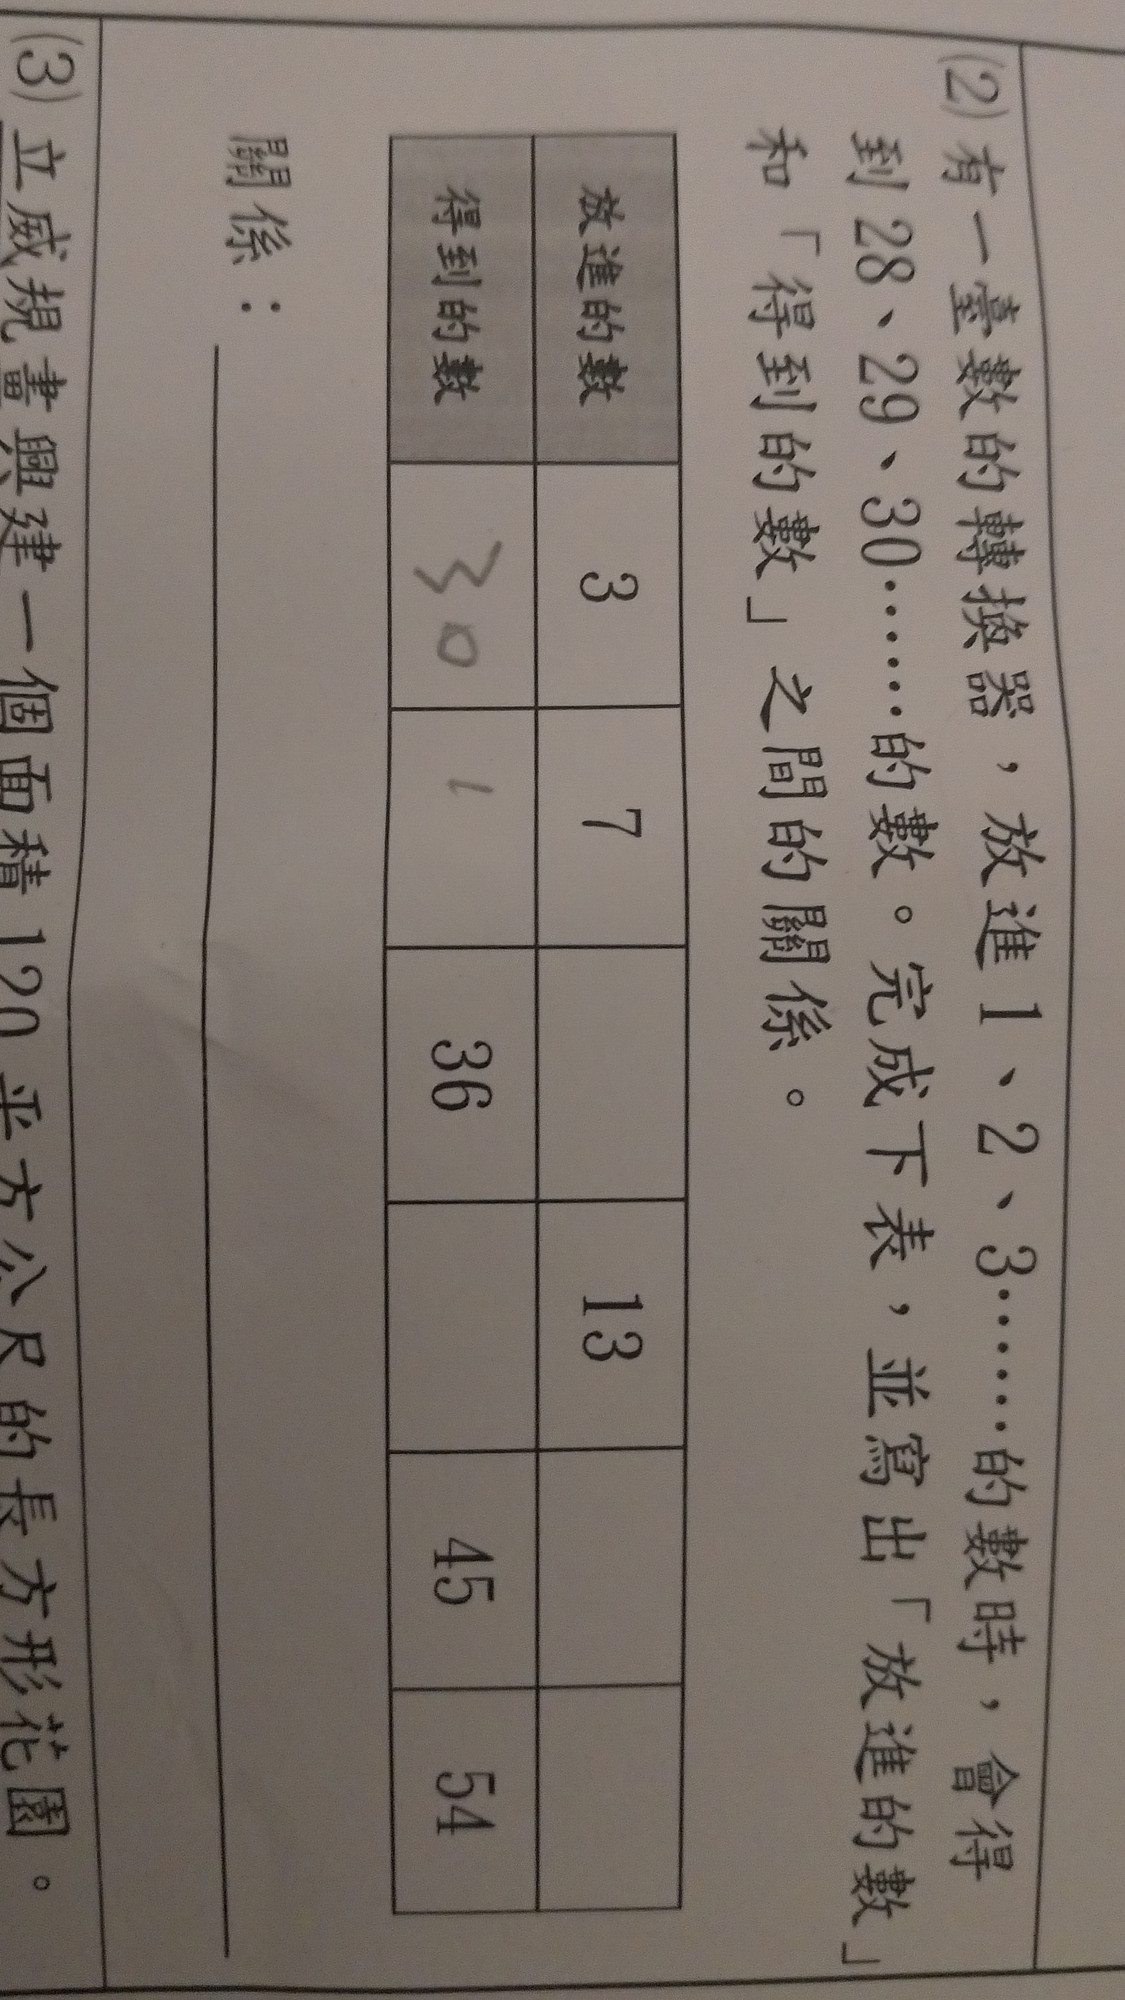 (2) 有一臺數的轉換器，放進1、2、3……的數時，會得
到28、29、30……的數。完成下表，並寫出「放進的數」
和「得到的數」之間的關係。
放進的數 3 7 13
得到的數 30 1 36 45 54
關係：
(3) 立威規畫興建一個面積120平方公尺的長方形花園。